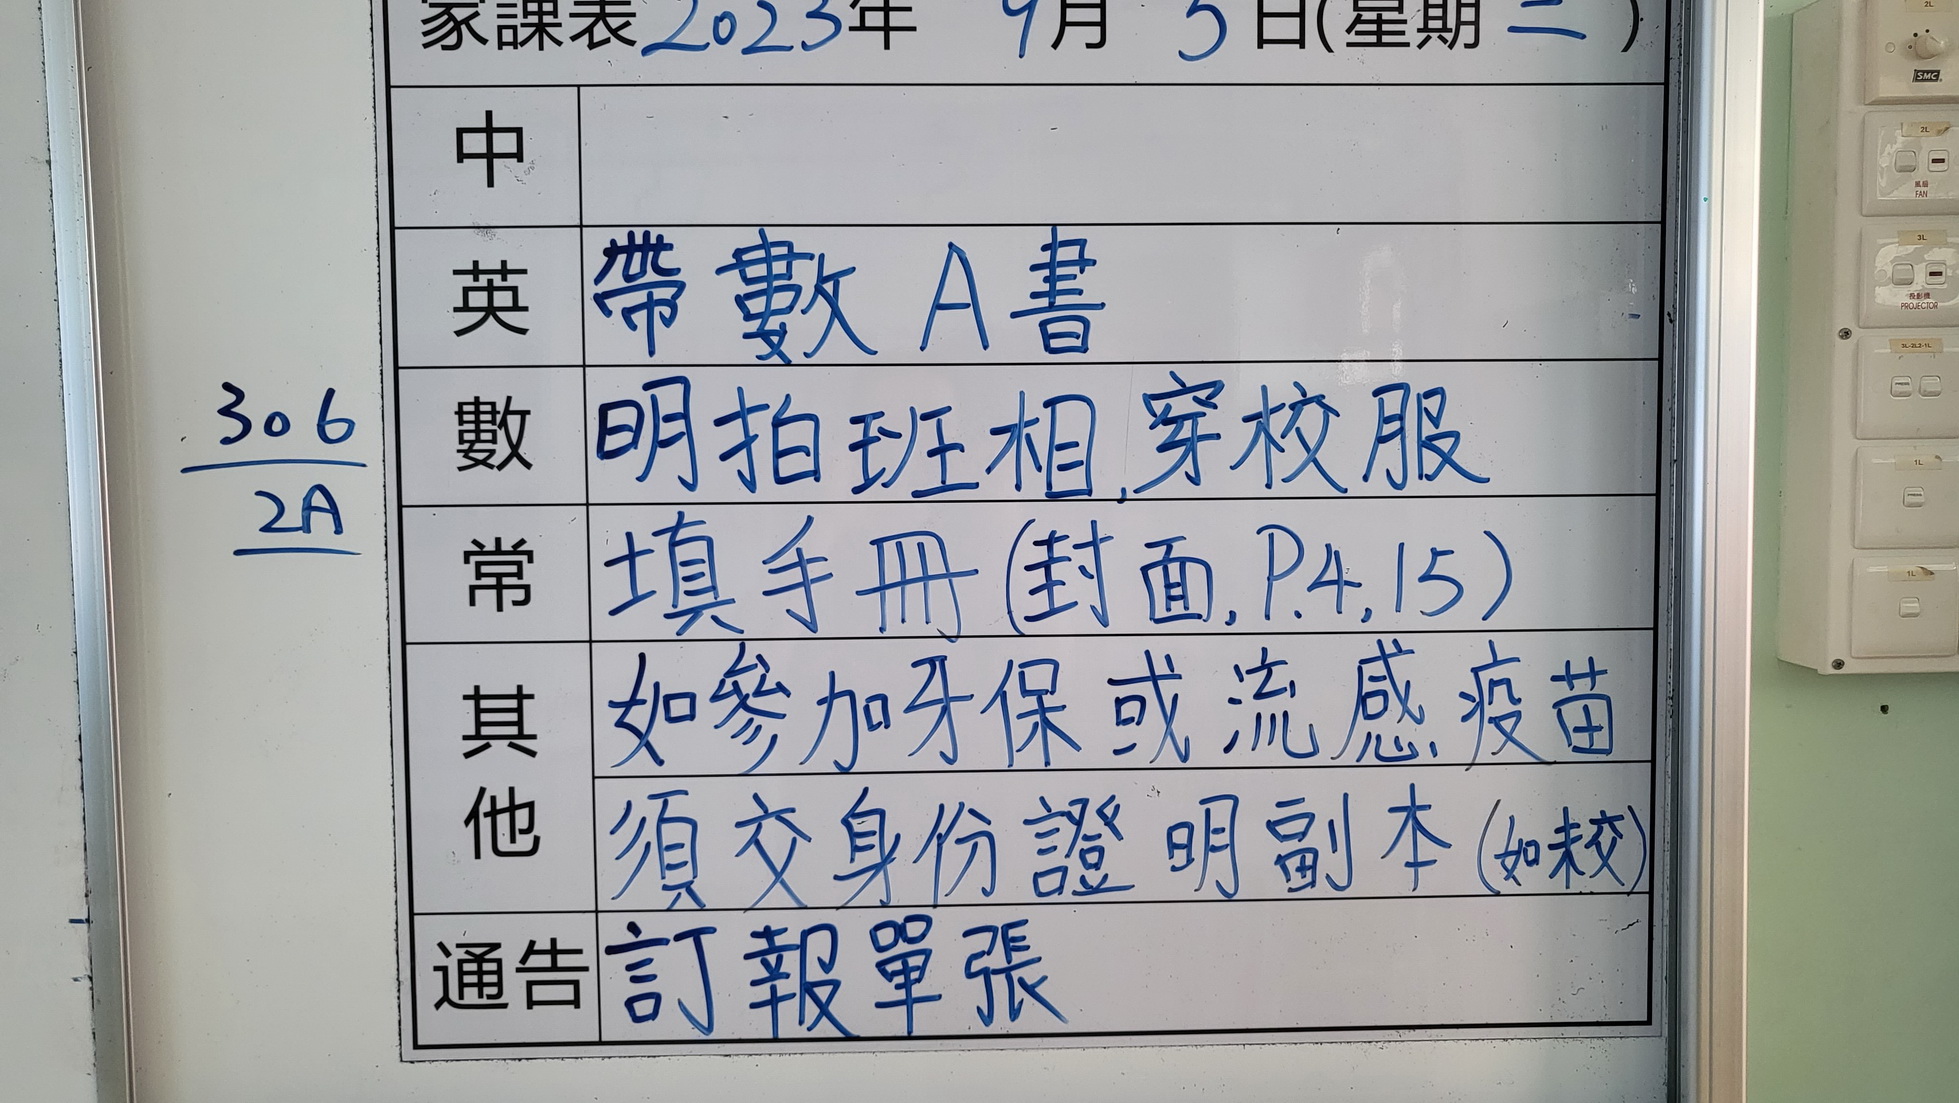 家課表2023年 9月 5日(星期二)
中
英 帶數A書
數 明拍班相,穿校服
常 填手冊(封面,P.4,15)
其他 如參加牙保或流感疫苗
須交身份證明副本(如未交)
通告 訂報單張
306
2A
2L
SMC
2L
風扇
FAN
3L
投影機
PROJECTOR
3L-2L2-1L
1L
1L